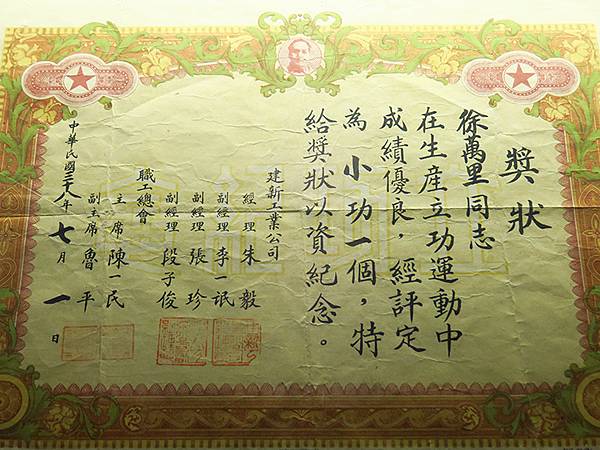 獎狀
徐萬里同志
在生産立功運動中
成績優良，經評定
為小功一個，特
給奬狀以資紀念。
建新工業公司
經理 朱毅
副經理 李一氓
副經理 張珍
副經理 段子俊
職工總會
主席 陳一民
副主席 魯平
中華民國三十八年七月一日